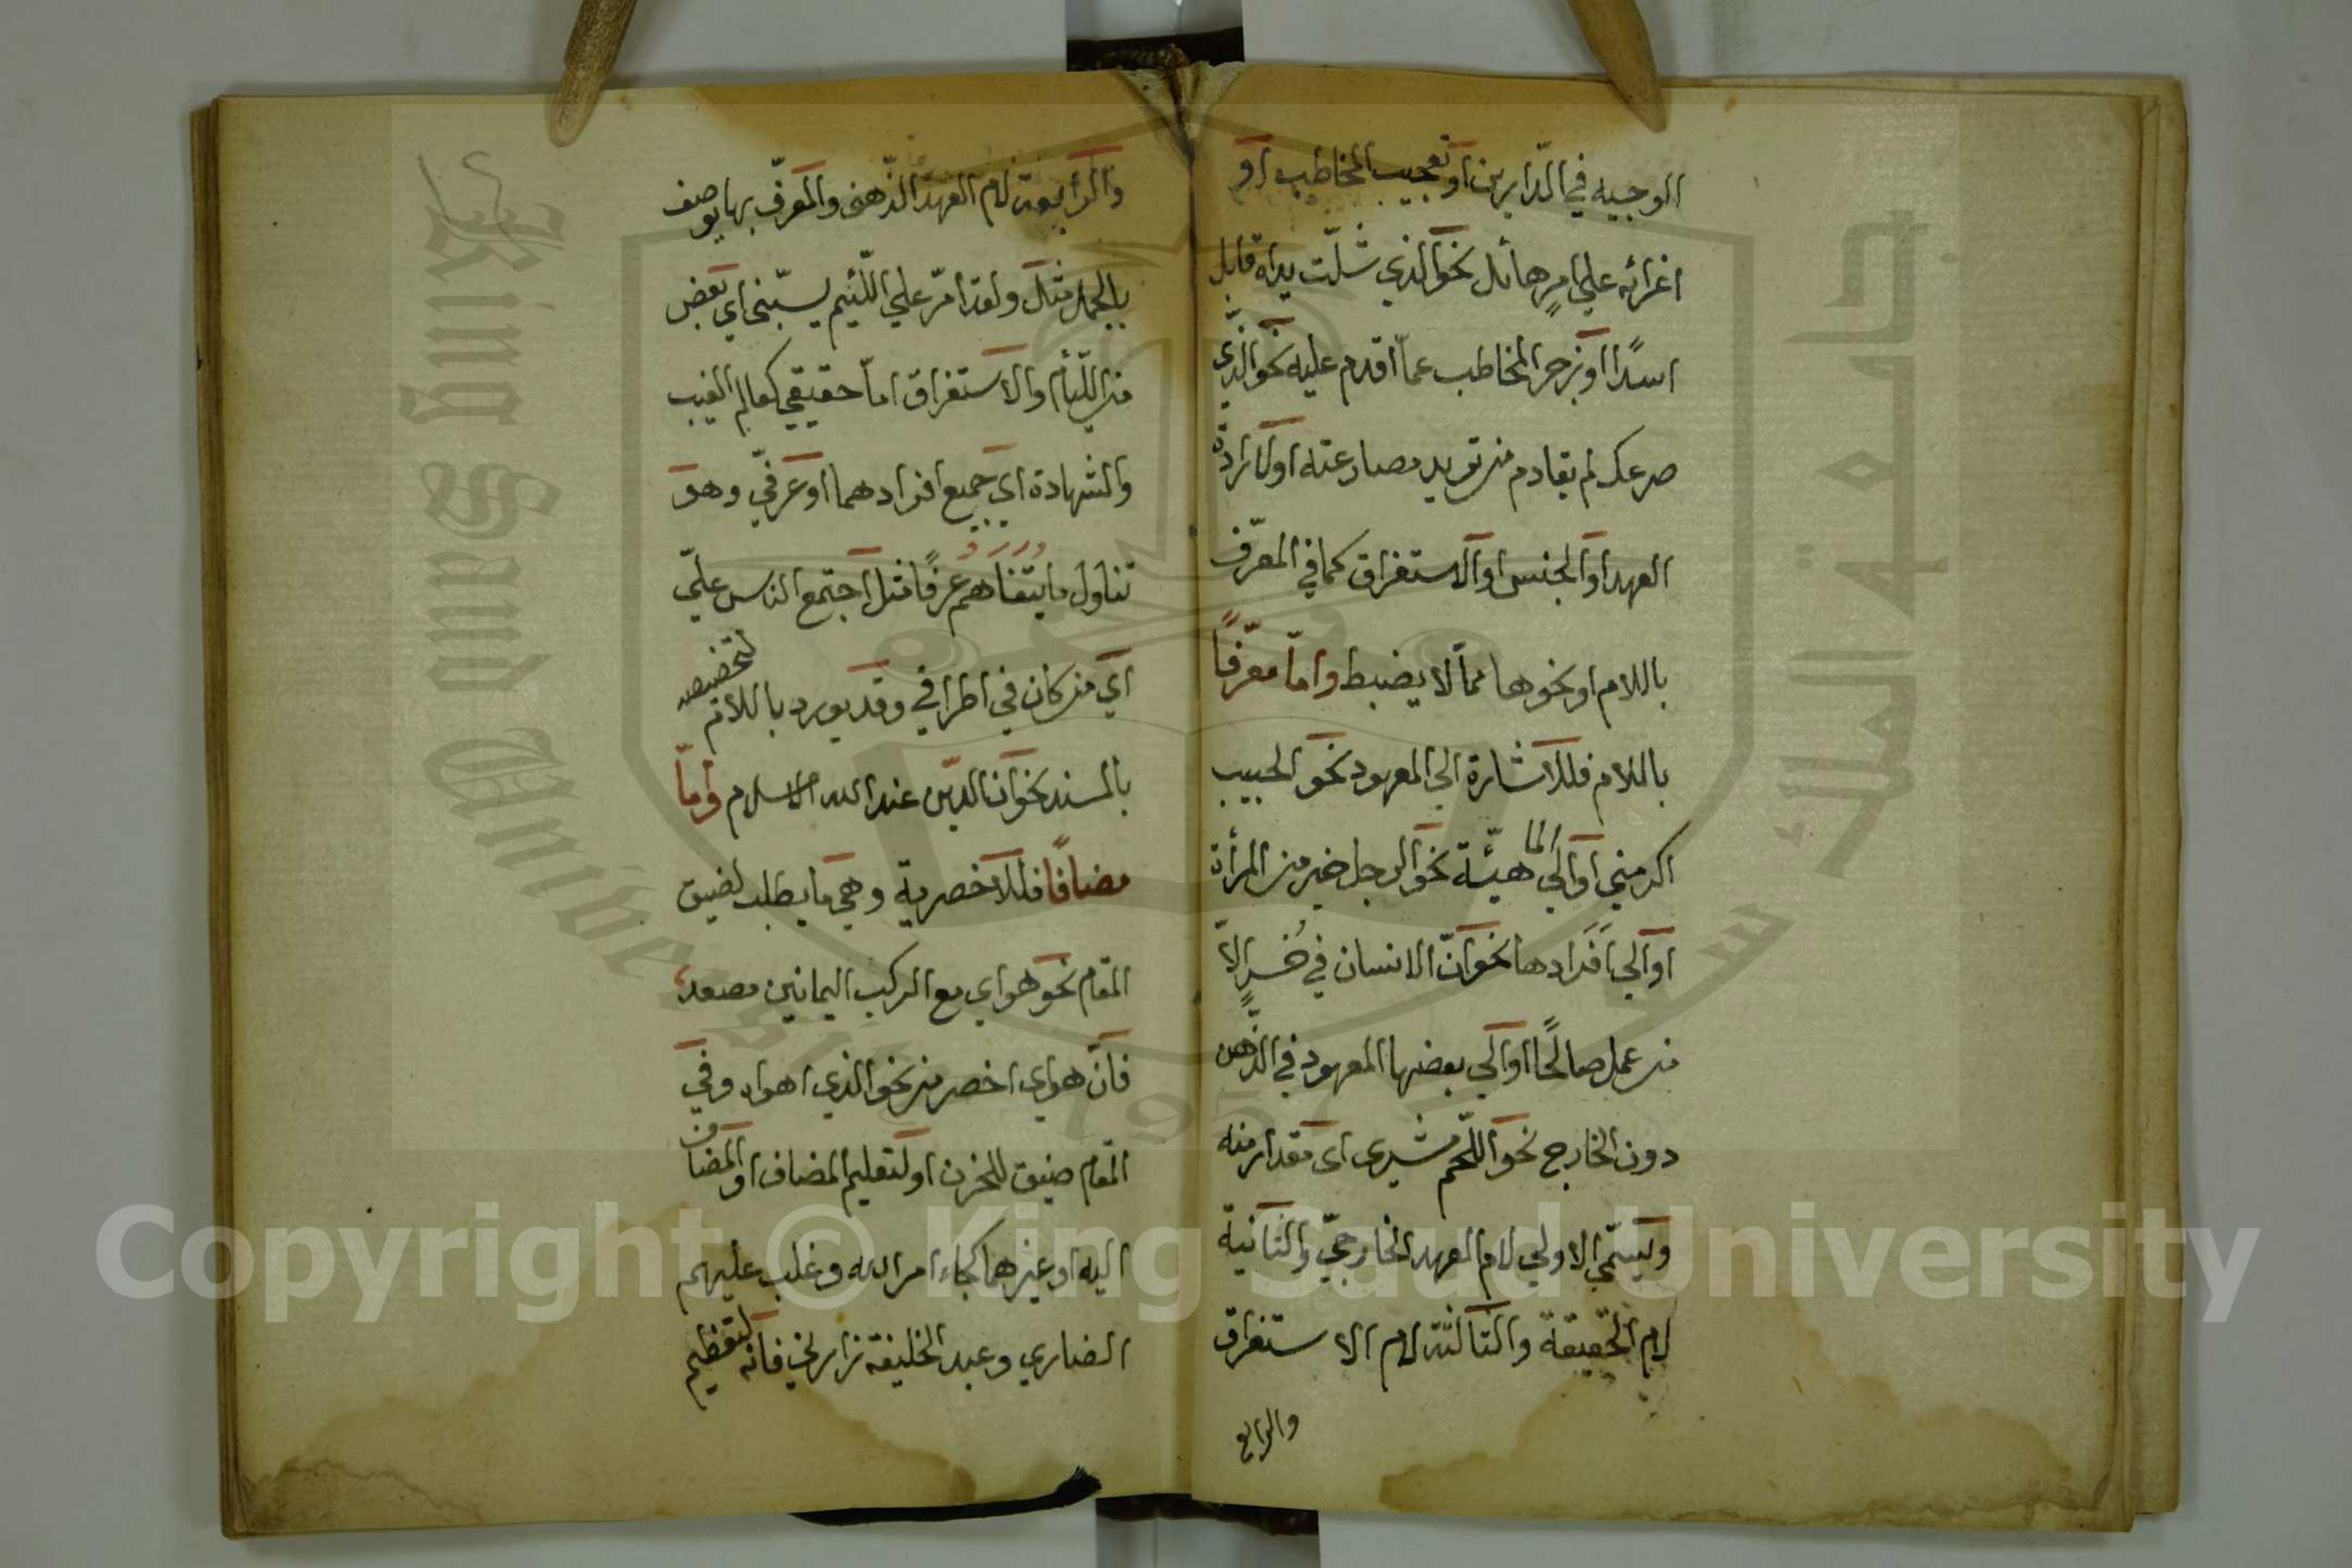 الوجيه في الدّارين اَو تعجيب المخاطب اَو
اغرائه علي امرٍ هائل نحو الذي شلّت يداه قابل
اسدًا اَو زجر المخاطب عمّا اقدم عليه نحو الذي
صرعك لم يقادم من تريد مصارعته اولارادة
العهد اوالجنس اوالاستغراق كما في المعرّف
باللام او نحوها ممّا لا يضبط وامّا معرّفًا
باللام فللاشارة الي المعهود نحو الحبيب
اكرمني اوالي الماهيّة نحو الرجل خير من المرأة
اوالي افرادها نحو انّ الانسان في خُسرٍ الاّ
من عمل صالحًا اوالي بعضها المعهود في الذّهن
دون الخارج نحو اللّحم شيرى اى مقدار منه
ويسمّي الاولي لام العهد الخارجيّ والثانية
لام الحقيقة والثالثة لام الاستغراق
والرابع
والرابعة لام العهد الذّهنى والمعرّف بها يوصف
بالجمل مثل ولقد امرّ علي اللّئيم يسبّني اي بعض
من اللّئام والاستغراق امّا حقيقي كعالم الغيب
والشهادة اي جميع افرادهما اوعرفيّ وهو
تناول ما يتفاهم عرفًا مثل اجتمع الناس عليّ
اي من كان في اطرافي وقد يورد باللام لتخصيصه
بالمسند نحو انّ الدّين عند الله الاسلام وامّا
مضافًا فللاخصرية وهي ما يطلب لضيق
المقام نحو هواي مع الركب اليمانين مصعد
فانّ هواي اخصر من نحو الذي اهواه وفي
المقام ضيق للحزن اولتعليم المضاف اوالمضاف
اليه اوغيرهما كجاء امر الله وغلب عليهم
النصاري وعبد الخليفة زارني فانّه لتعظيم
Copyright © King Saud University
King Saud University
جامعة الملك سعود
1957